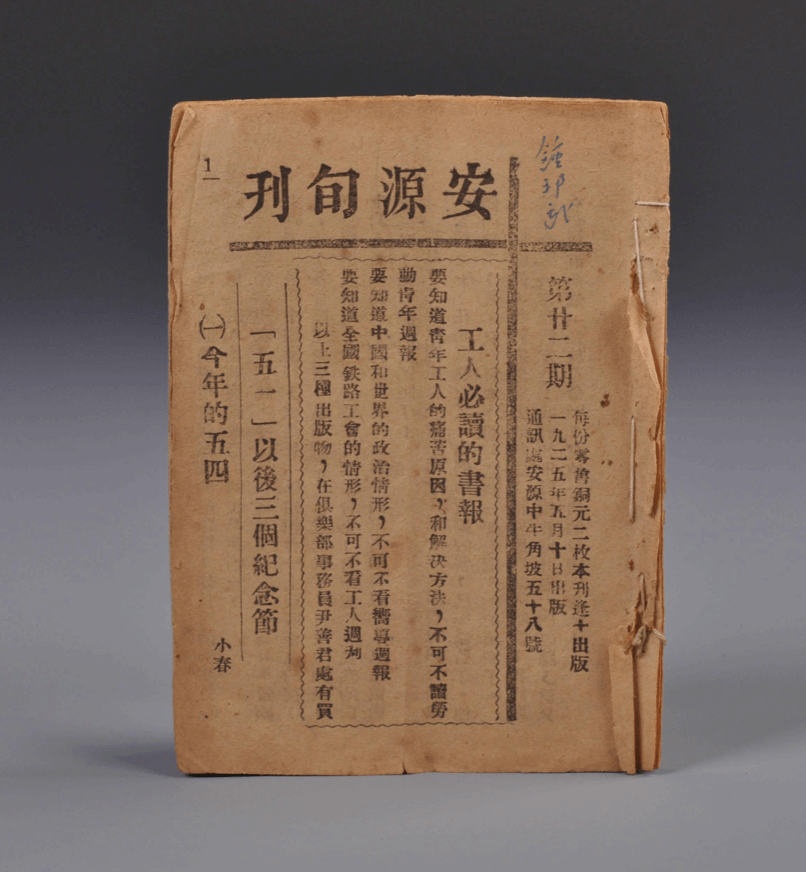 安源旬刊
第廿二期
每份零售銅元二枚本刊逢十出版
一九二五年五月十日出版
通訊處安源中牛角坡五十八號
工人必讀的書報
要知道靑年工人的痛苦原因,和解决方法,不可不讀勞
動靑年週報
要知道中國和世界的政治情形,不可不看嚮導週報
要知道全國鉄路工會的情形,不可不看工人週刋
以上三種出版物,在俱樂部事務員尹善君處有買
「五一」以後三個紀念節
小春
㈠今年的五四
1